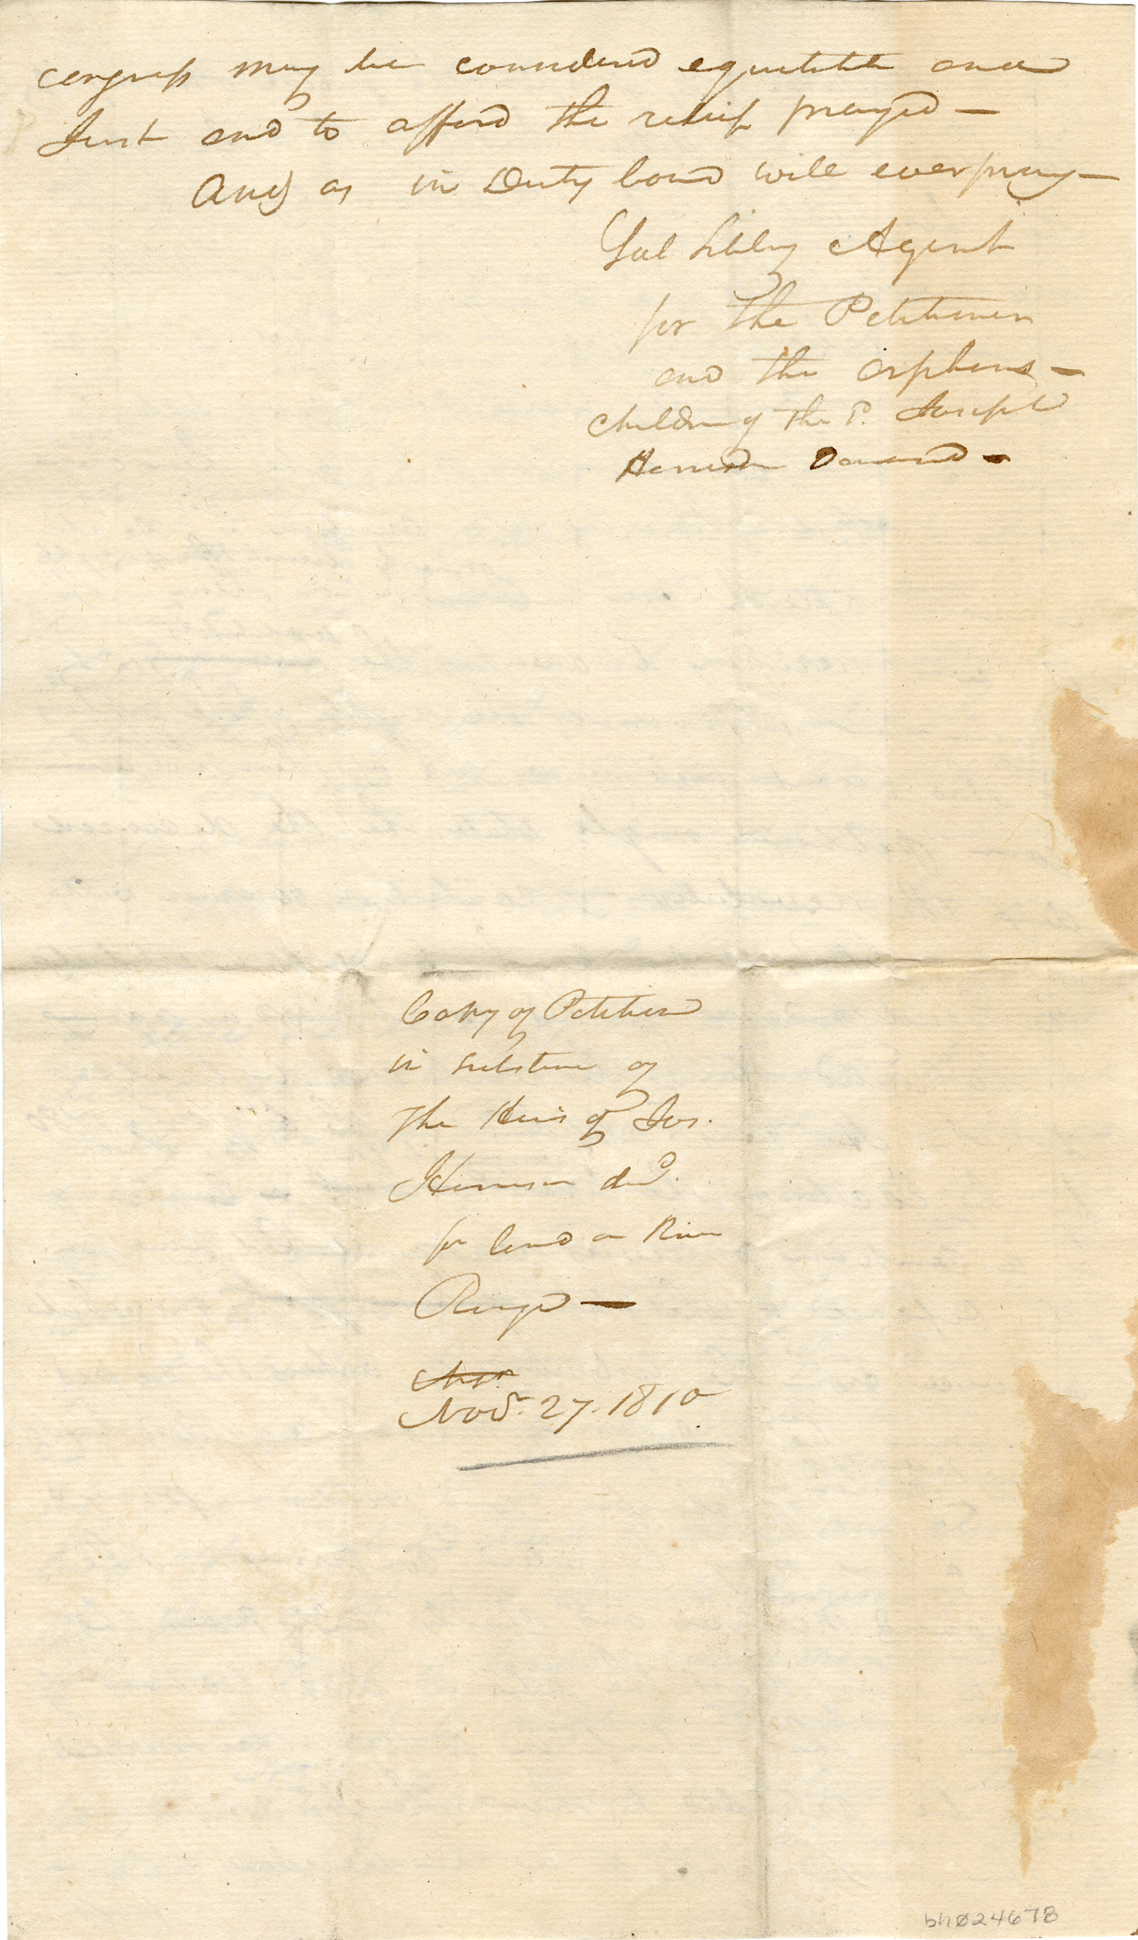 congress may be considered equitable and
Just and to afford the relief prayed —
And as in Duty bound will ever pray —
Gal Sibley Agent
for the Petitioners
and the orphans —
children of the P. Joseph
Harrison Deceased —
Copy of Petition
in substance of
The Heirs of Jos.
Harrison decd.
for land on River
Rouge —
Novr. 27. 1810
bh024678